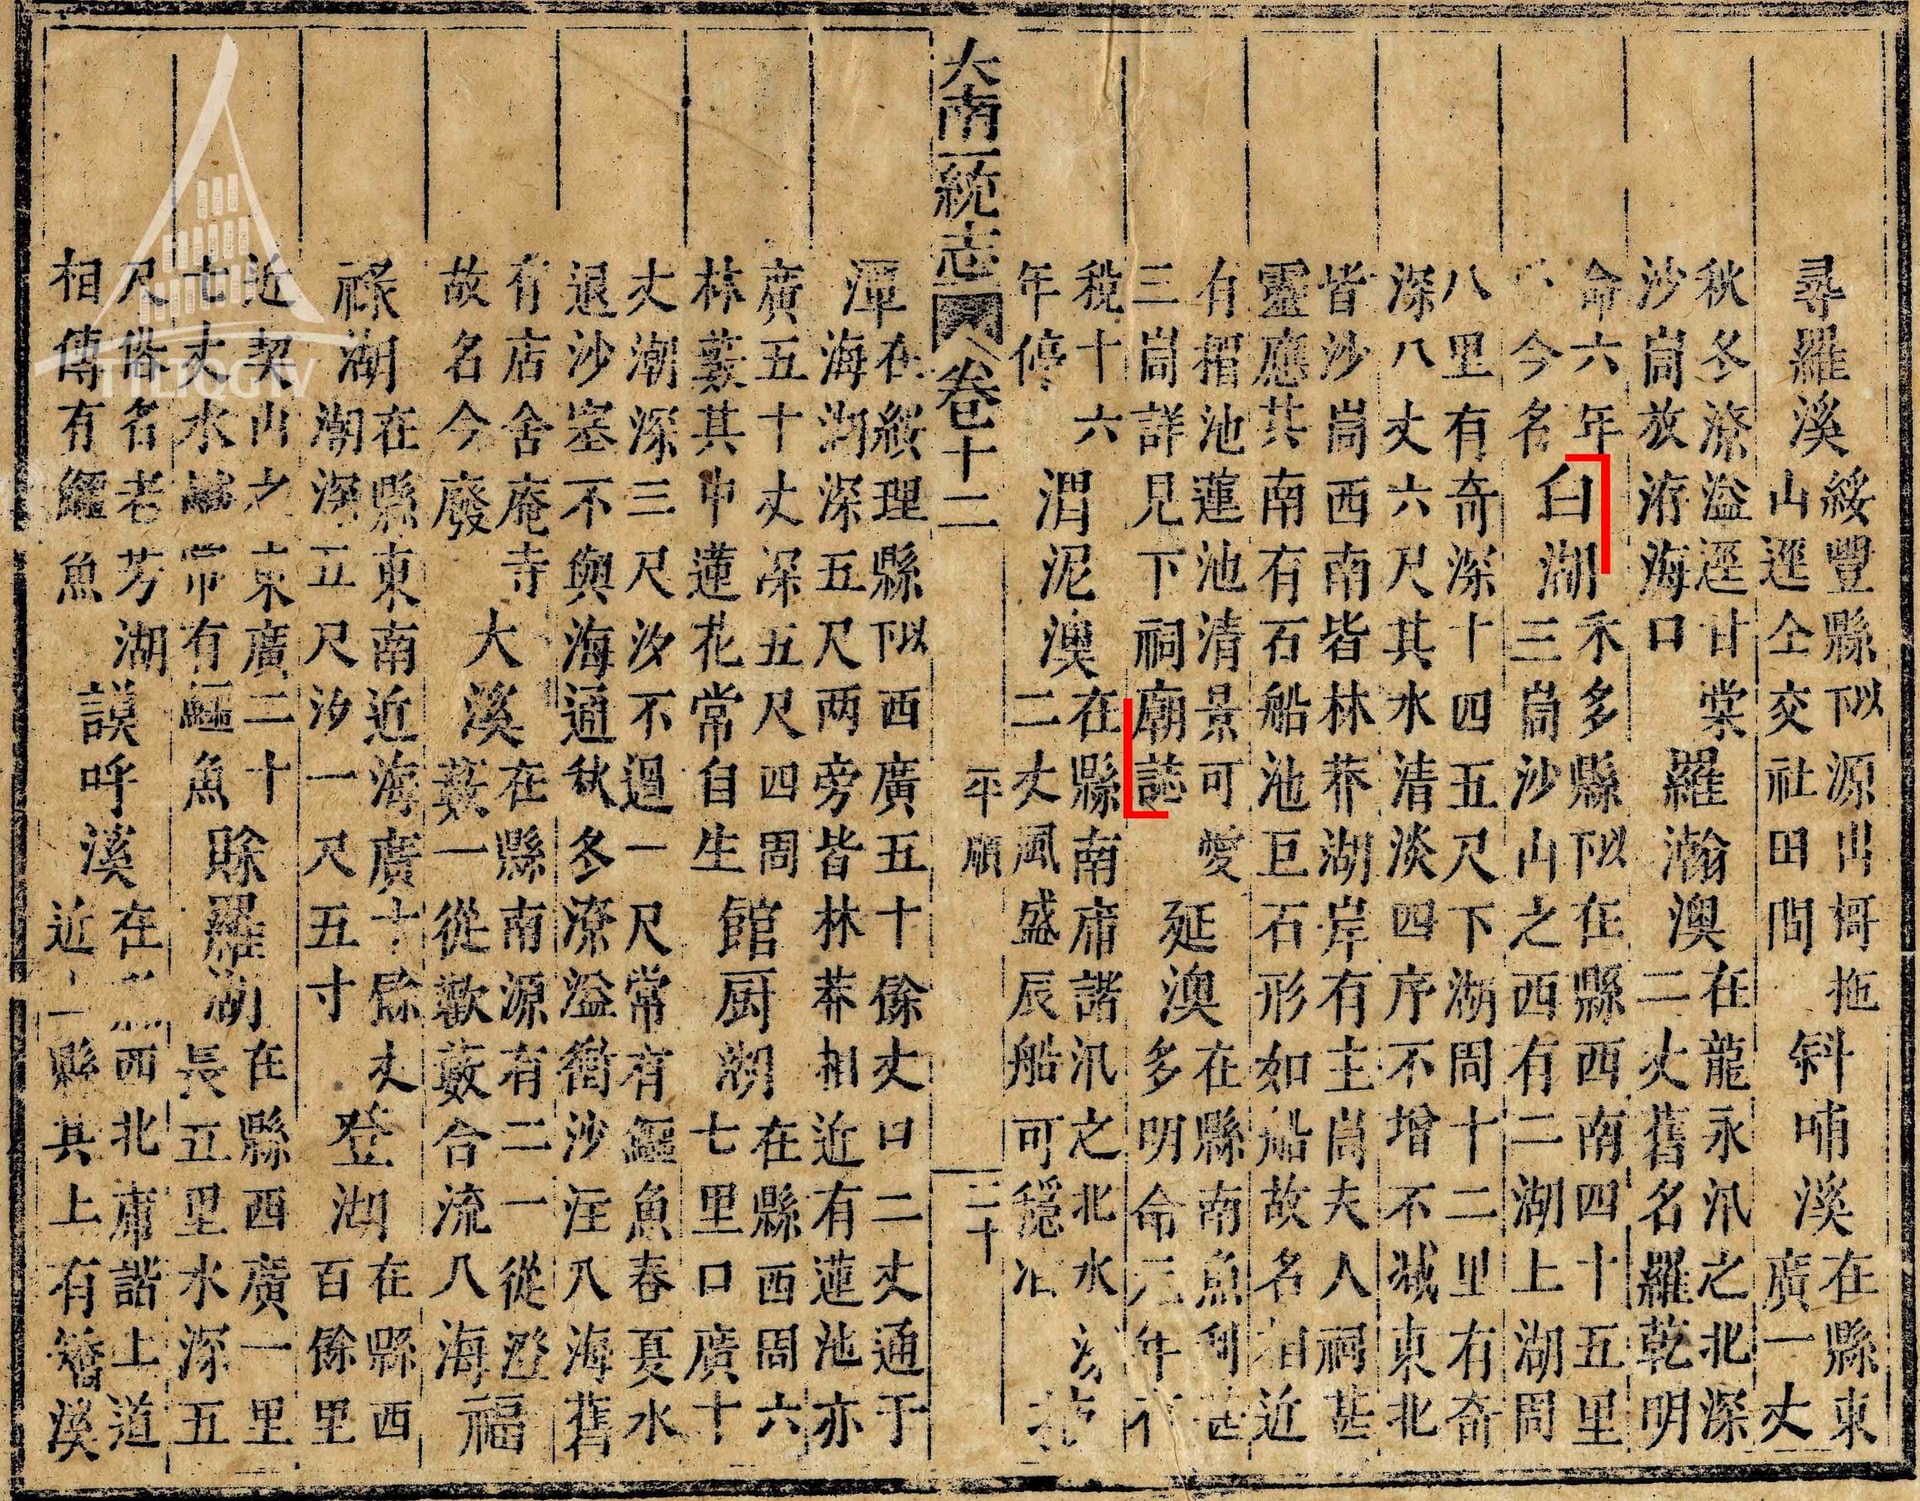 尋羅溪
綏豐縣似源出哥拖
山逕仝交社田間
斜哺溪
在縣東
廣一丈
秋冬潦溢逕甘棠
沙崗放洊海口
羅瀚澳
在龍永汛之北深
二丈舊名羅乾明
命六年
今名
白湖
禾多縣似在縣西南四十五里
三崗沙山之西有二湖上湖周
八里有奇深十四五尺下湖周十二里有奇
深八丈六尺其水清淡四序不增不減東北
皆沙崗西南皆林莽湖岸有主崗夫人祠甚
靈應其南有石船池巨石形如船故名相近
有摺池蓮池清景可愛
三崗詳見下祠廟誌
延澳
在縣南魚利甚
多明命元年
稅十六
年停
渭泥澳
在縣南庯諧汛之北水
二丈風盛辰船可穩泊
大南一統志 卷十二 平順 二十
潭
在綏理縣似西廣五十餘丈口二丈通于
海湖深五尺两旁皆林莽相近有蓮池亦
廣五十丈深五尺四周
林薮其中蓮花常自生
館厨湖
在縣西周六
七里口廣十
丈潮深三尺汐不過一尺常有鱷魚春夏水
退沙塞不與海通秋冬潦溢衝沙注入海舊
有店舍庵寺
故名今廢
大溪
在縣南源有二一從澄
薮一從歡薮合流入海
福
祿湖
在縣東南近海廣十餘丈
潮深五尺汐一尺五寸
登湖
在縣西
百餘里
近契山之東廣二十
七丈水鹹常有鱷魚
賒羅湖
在縣西廣一里
長五里水深五
尺俗名老芳湖
相傳有鱷魚
謨呼溪
在西北庯諧上道
近縣其上有簪溪